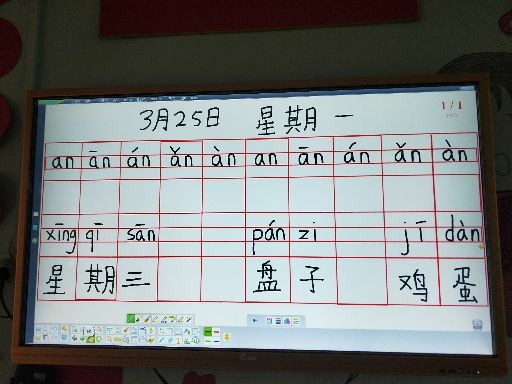 3月25日 星期一
1/1
an ān án ǎn àn an ān án ǎn àn
xīng qī sān pán zi jī dàn
星期三 盘子 鸡蛋